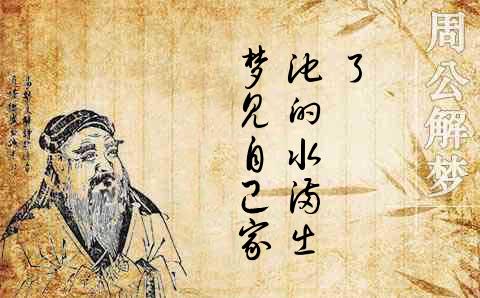 周公解梦
梦见自己家
池的水满出
了